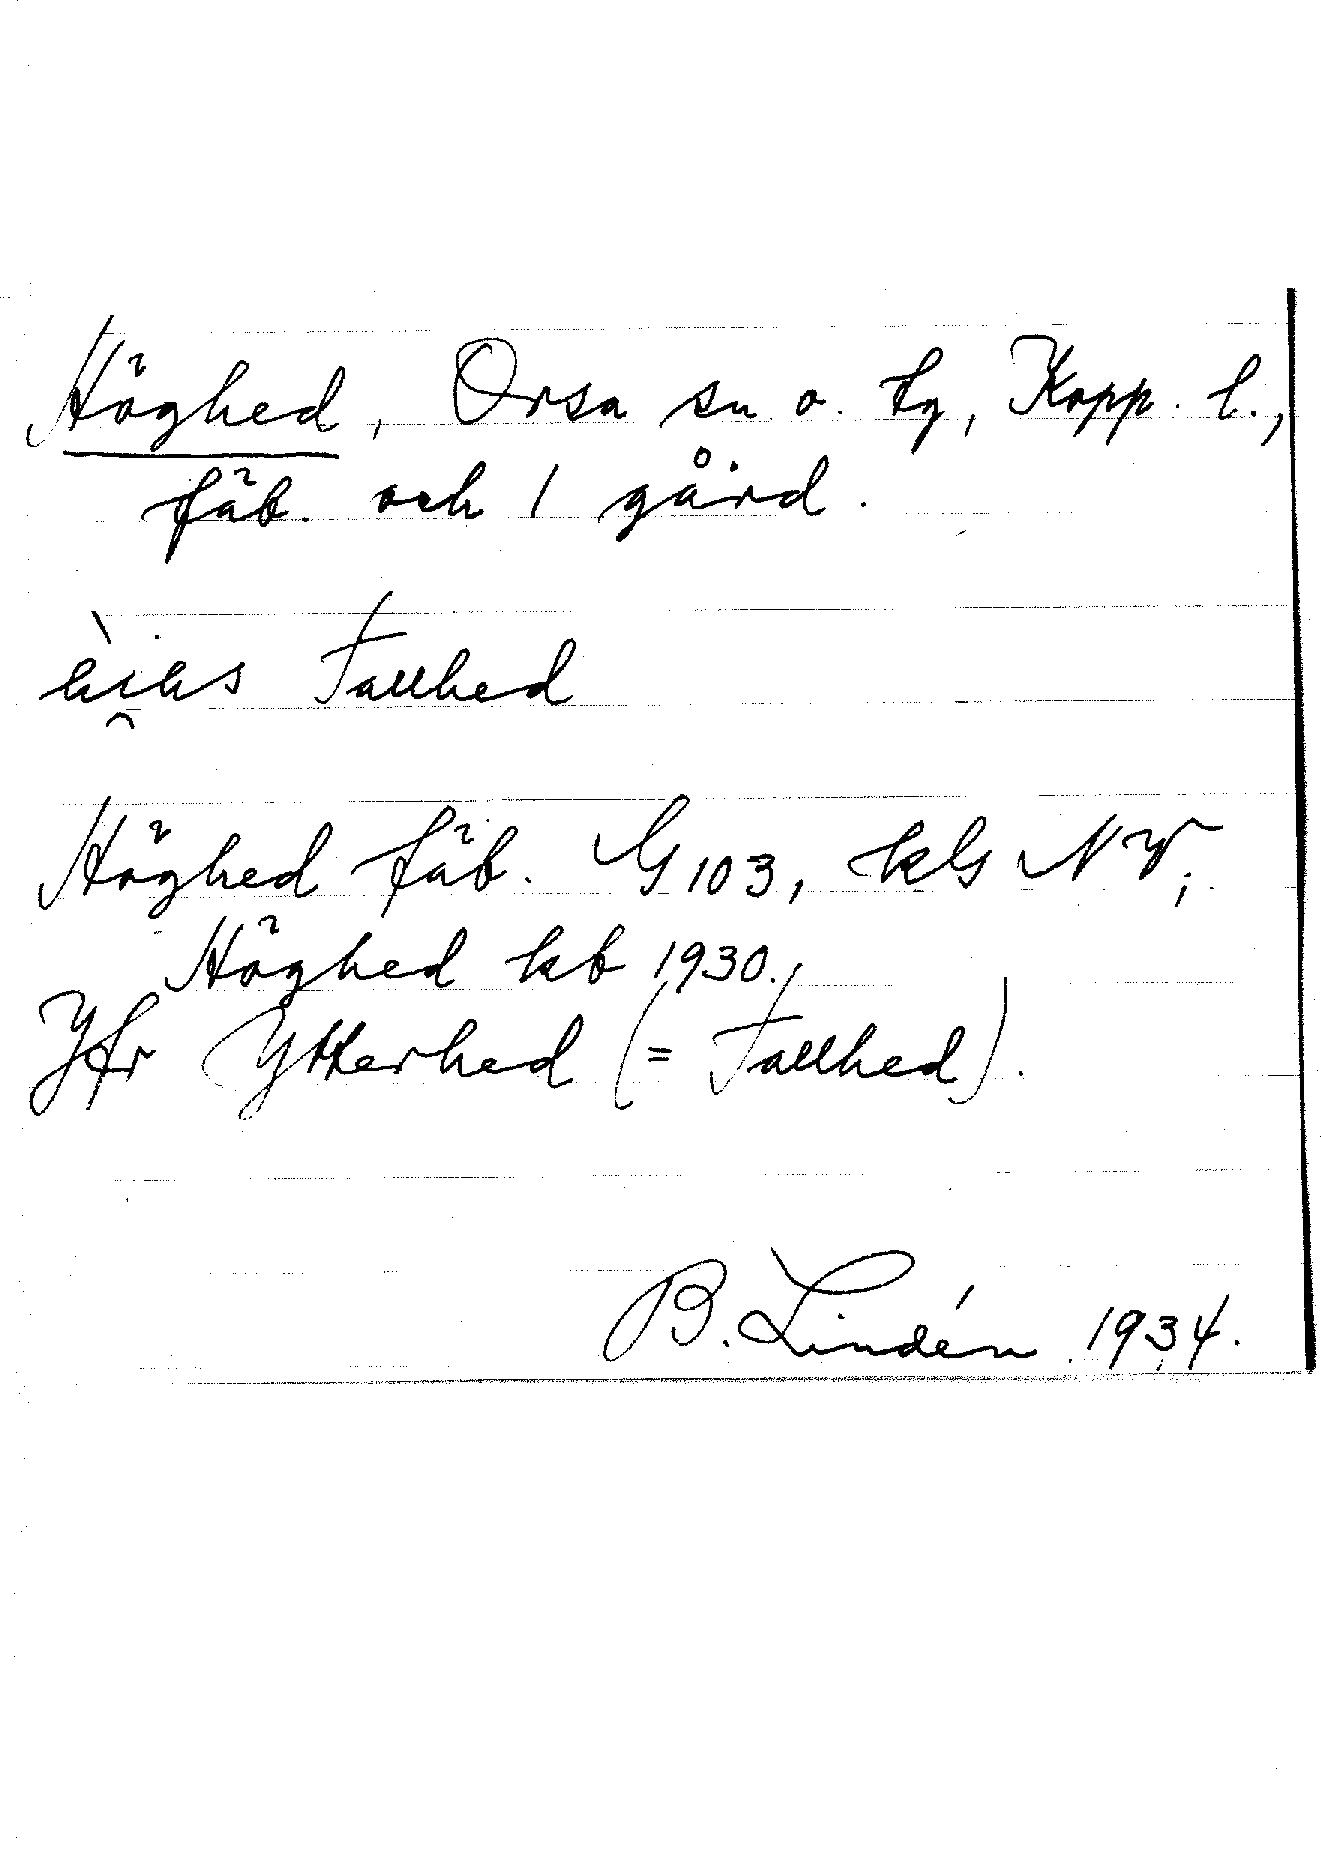 Höghed, Orsa sn o. tg, Kopp. l.,
fäb. och 1 gård.
Fallhed
Höghed fäb. G 103, kG NV;
Höghed kb 1930.
Jfr Ytterhed (= Fallhed).
B. Lindén 1934.